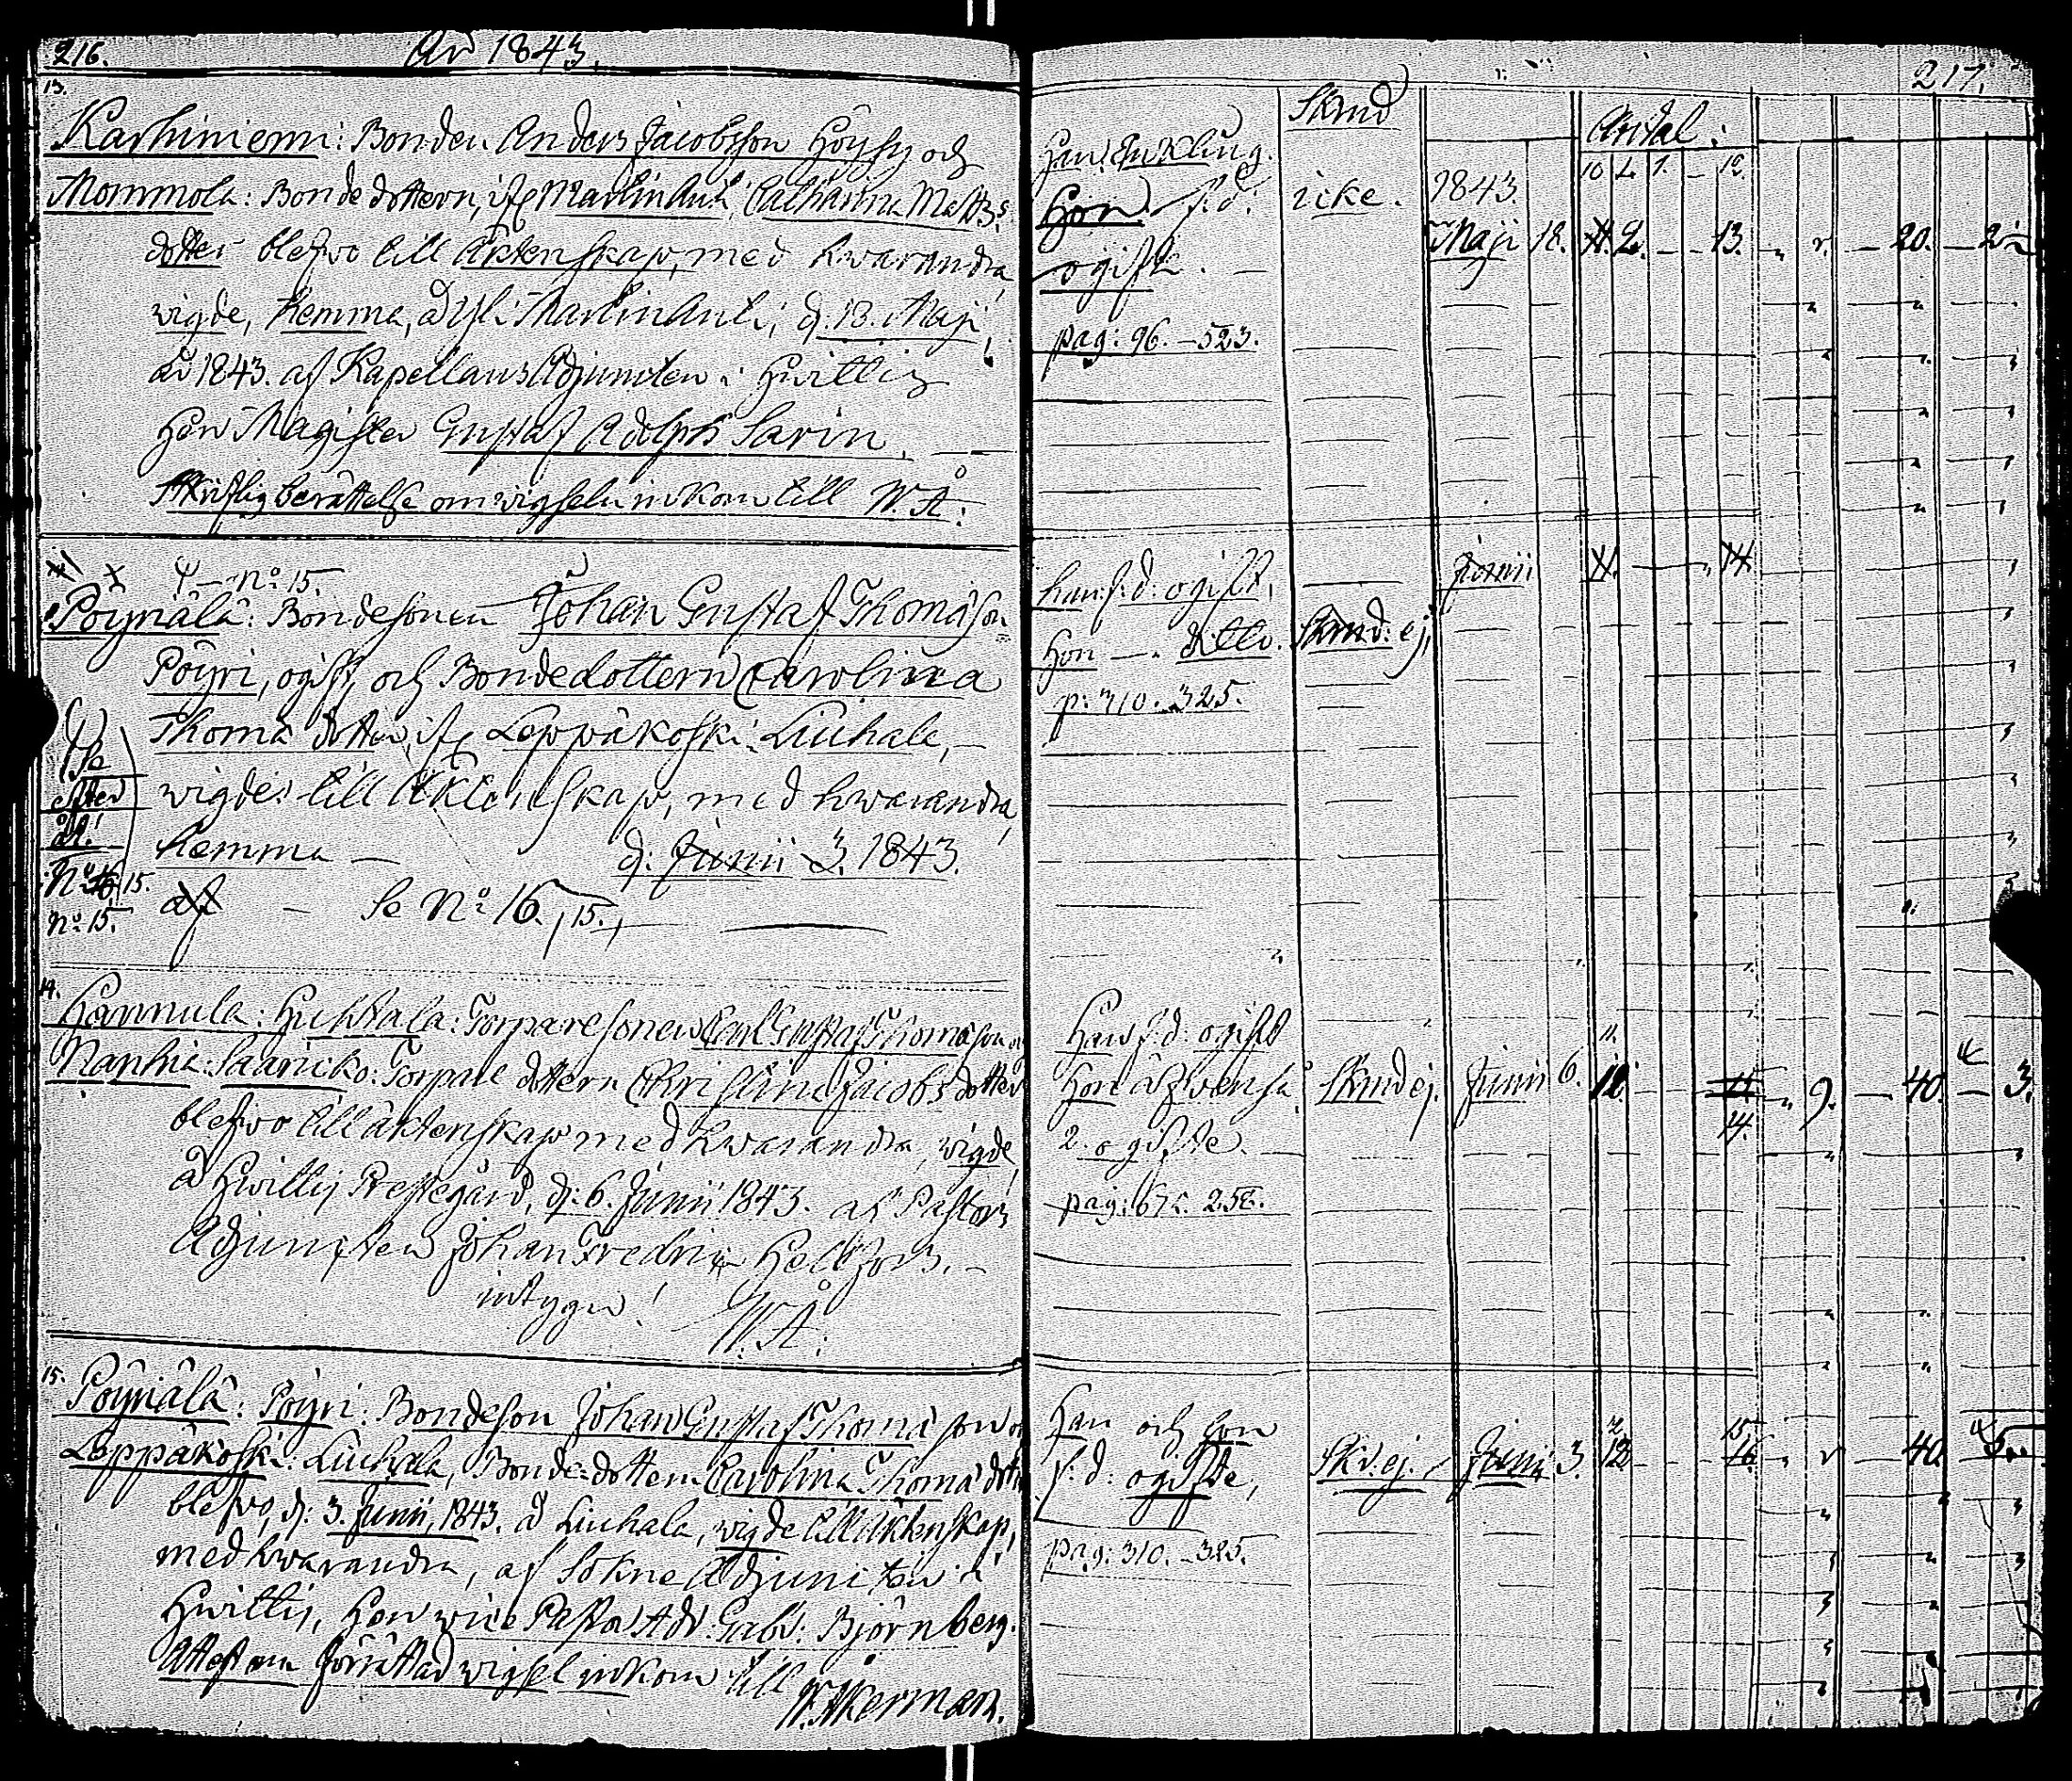 216.
År 1843.
13.
Karhiniemi: Bonden Anders Jacobsson Höysy och
Mommola: Bondedottern, ifr. Martin Anti, Catharina Matts
dotter blefvo till Äktenskap, med hwarandra,
wigde, hemma, å Yli Martin Anti, d: 18. Maji
år 1843. af Kapellans Adjuncten i Hwittis
Herr Magister Gustaf Adolph Sarin.
Skriftlig berättelse om wigseln inkom till W. Å:
No: 15.
Pöyriälä: Bondesonen Johan Gustaf Thomasson
Pöyri, ogift, och Bondedottern Carolina
Thomædotter, ifr. Leppäkoski: Liuhala,
wigdes till Äktenskap, med hwarandra,
hemma — d: Junii 3. 1843.
af — Se No: 16. 15.
Se
efter
åt!
No: 16, 15.
No: 15.
14.
Hannula: Huhtala: Torparesonen Carl Gustaf Thomason
Nanhia: Saaricko: Torpare dottern Christina Jacobsdotter
blefvo till äktenskap med hwarandra, wigde,
å Hwittis Prestegård, d: 6. Junii 1843. af Pastors
Adjuncten Johan Fredric Hellfors. –
intygar! W. Å:
15.
Pöyriälä: Pöyri: Bondeson Johan Gustaf Thomæson
Leppäkoski: Liuhala, Bonde-dottern Carolina Thomædotter
blefvo, d: 3. Junii, 1843. å Liuhala, wigde till Äktenskap,
med hwarandra, af Sokne Adjuncten i
Hwittis, Herr vice Pastor Gabr: Björnberg.
Attest om förrättad wigsel inkom till
W. Åkerman.
217.
Skrud
Antal:
Han, Enkling.
Hon f: d:
ogift. –
icke.
1843.
Maji 18.
2. 13. 20.
pag: 96. – 523.
han f: d: ogift,
Hon — ditto. Skrud: ej,
Junii
p: 310. 325.
Han f: d: ogift
Hon äfvenså. Skrud ej. Junii 6.
2. ogifte.
11. 14. 9. 40. 3.
Han och hon
f: d: ogifte, Skr. ej. Junii 3.
12. 15 16. 40
pag: 310. – 325.